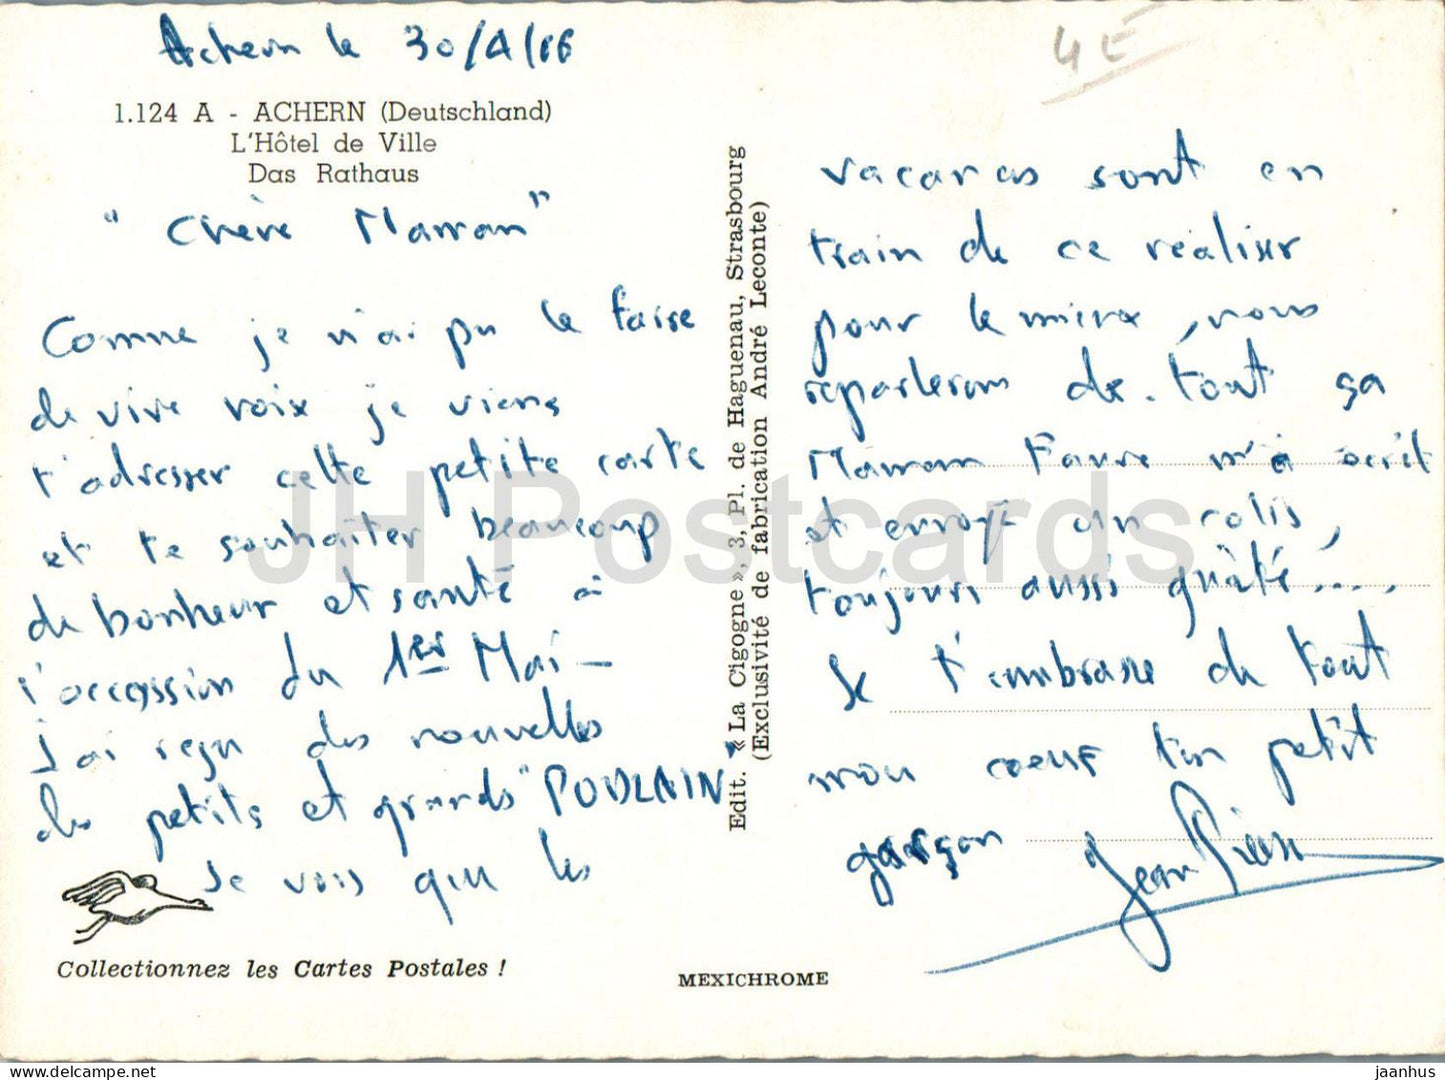 Achern le 30/4/66
4 E
1.124 A - ACHERN (Deutschland)
L'Hôtel de Ville
Das Rathaus
" Chère Maman "
Comme je n'ai pu le faire
de vive voix je viens
t'adresser cette petite carte
et te souhaiter beaucoup
de bonheur et santé à
l'occassion du 1er Mai -
J'ai reçu des nouvelles
des petits et grands "POULAIN"
Je vois que les
Collectionnez les Cartes Postales !
Edit. « La Cigogne », 3, Pl. de Haguenau, Strasbourg
(Exclusivité de fabrication André Leconte)
MEXICHROME
vacances sont en
train de ce réaliser
pour le mieux, nous
reparlerons de tout ça
Maman Favre m'à écrit
et envoyé un colis,
toujours aussi gâté....
Je t'embrasse de tout
mon coeur ton petit
garçon Jean Pierre
JH Postcards
jaanhus
oldthing.de